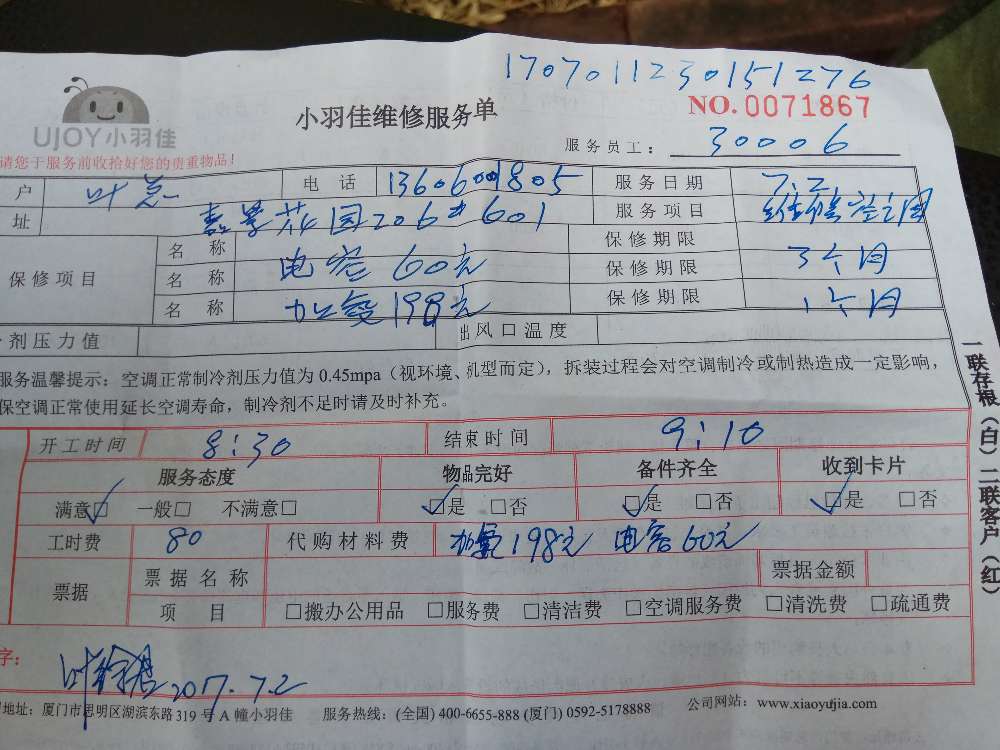 1707011230151276
UJOY小羽佳
小羽佳维修服务单
NO.0071867
请您于服务前收拾好您的贵重物品!
服务员工: 30006
户 叶总 电话 服务日期 7.2
址 嘉景花园206#601 服务项目 维修空调
保修项目 名称 保修期限
名称 电容60元 保修期限 3个月
名称 加氟198元 保修期限 1个月
剂压力值 出风口温度
服务温馨提示:空调正常制冷剂压力值为0.45mpa(视环境、机型而定),拆装过程会对空调制冷或制热造成一定影响,
保空调正常使用延长空调寿命,制冷剂不足时请及时补充。
开工时间 8:30 结束时间 9:10
服务态度 物品完好 备件齐全 收到卡片
满意□ 一般□ 不满意□ □是 □否 □是 □否 □是 □否
工时费 80 代购材料费 加氟198元 电容60元
票据 票据名称 票据金额
项目 □搬办公用品 □服务费 □清洁费 □空调服务费 □清洗费 □疏通费
字:
2017.7.2
地址:厦门市思明区湖滨东路319号A幢小羽佳 服务热线:(全国)400-6655-888(厦门)0592-5178888 公司网站:www.xiaoyujia.com
一联存根(白)二联客户(红)